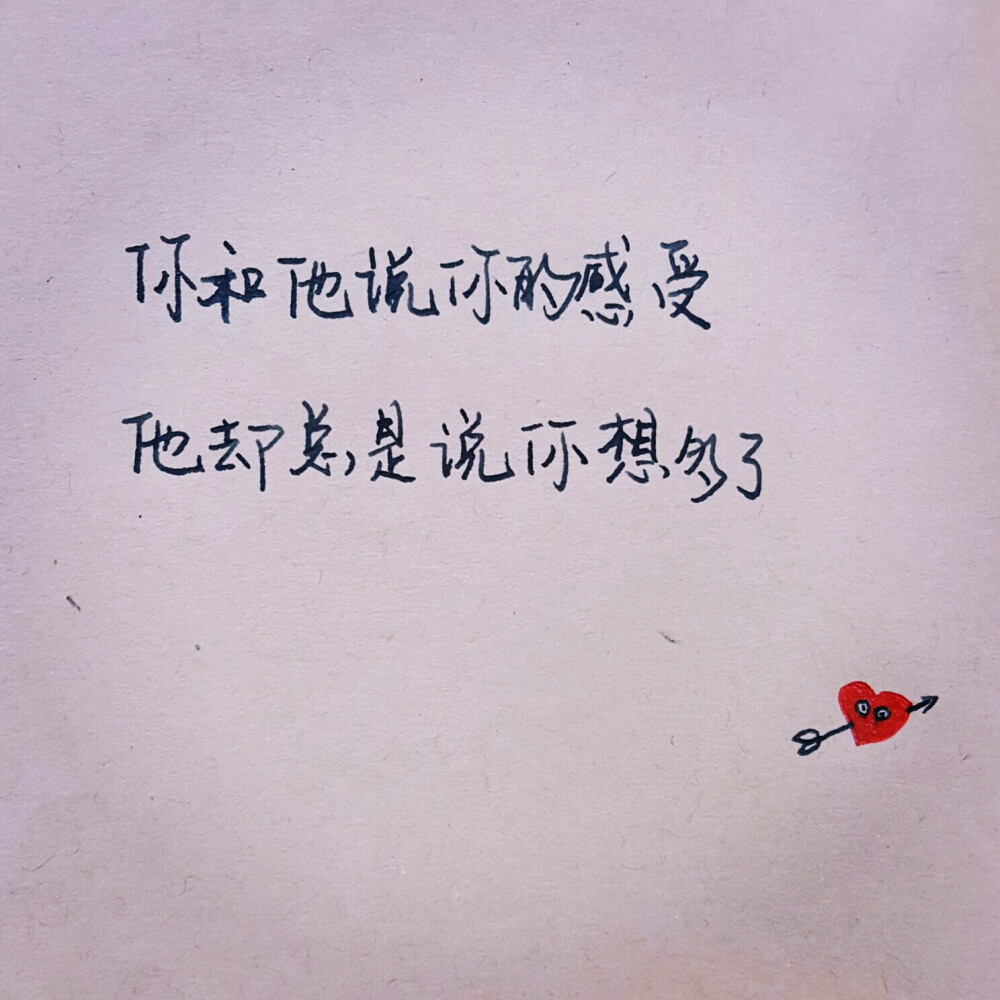 你和他说你的感受
他却总是说你想多了